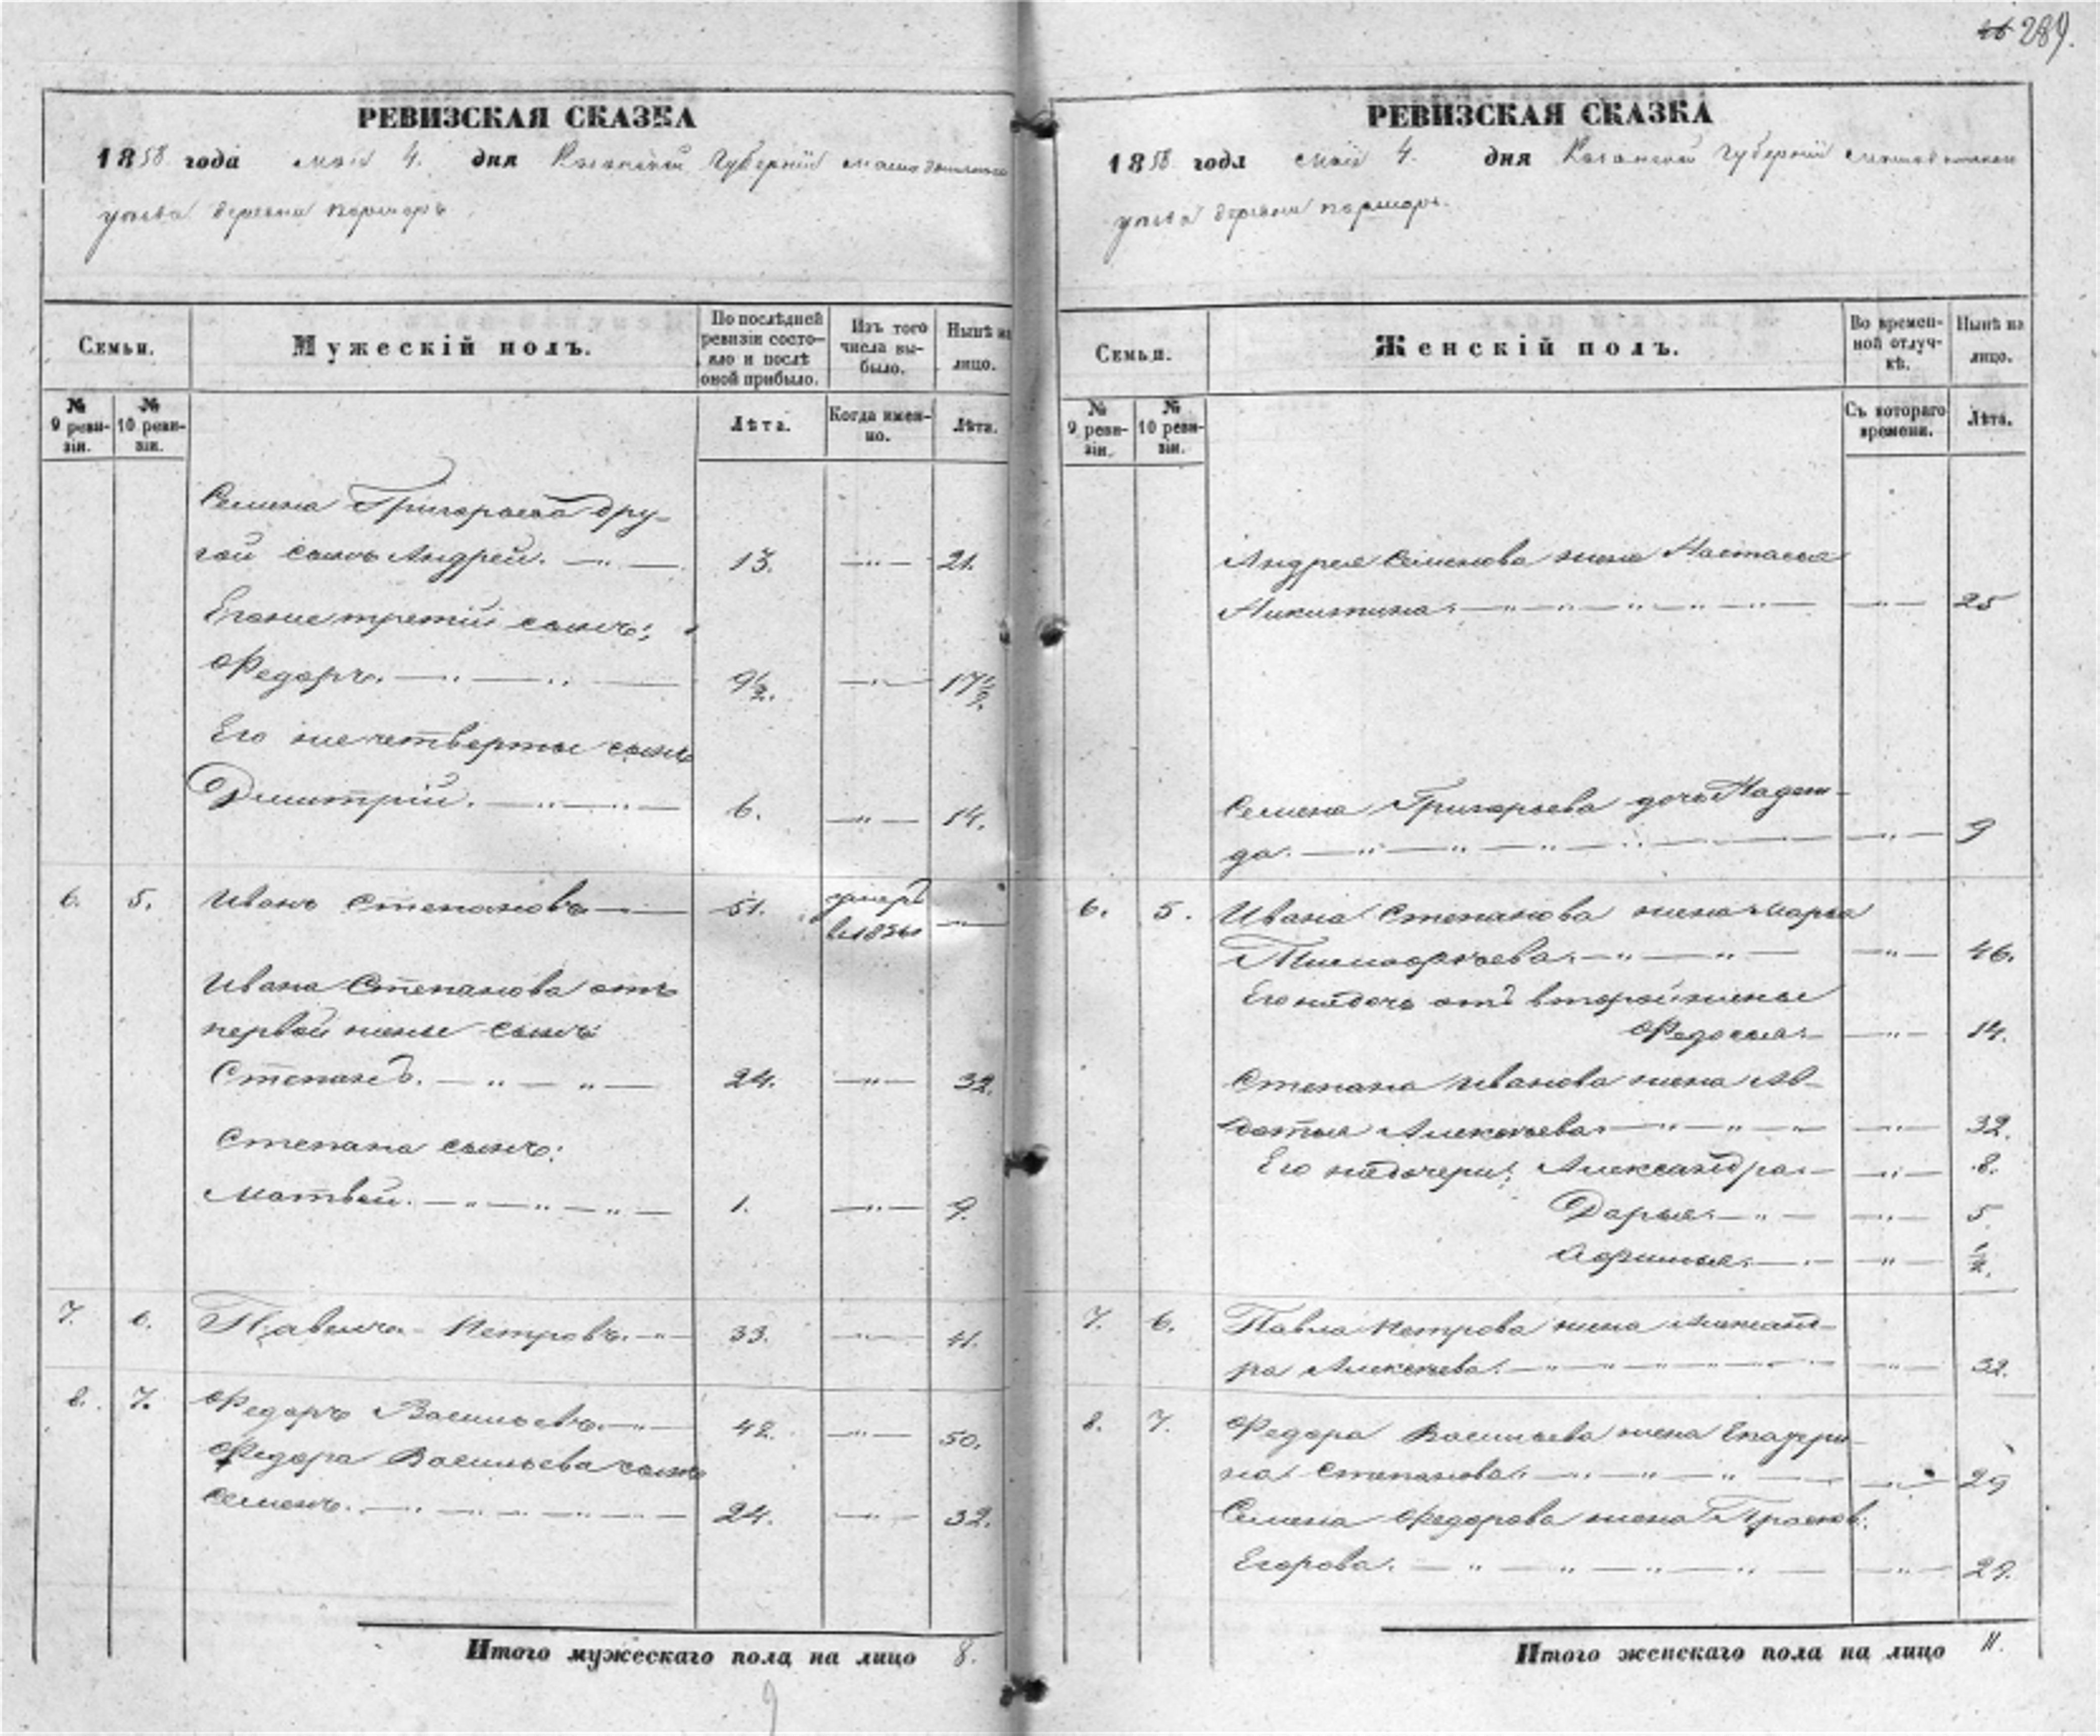 289.
РЕВИЗСКАЯ СКАЗКА
1858 года мая 4. дня Казанской Губернии
уезда деревни
Семьи.
Мужескій полъ.
По послѣдней ревизіи состояло и послѣ оной прибыло.
Изъ того числа выбыло.
Нынѣ на лицо.
№ 9 ревизіи.
№ 10 ревизіи.
Лѣта.
Когда именно.
Лѣта.
Семена Григорьева дру-
гой сынъ Андрей. 13. 21.
Егоже третій сынъ:
Федоръ. 9½. 17½.
Его же четверты сынъ
Дмитрій. 6. 14.
6. 5. Иванъ Степановъ 51. умеръ
Ивана Степанова отъ
первой жены сынъ:
Степанъ. 24. 32.
Степана сынъ:
Матвей. 1. 9.
7. 6. Павелъ Петровъ. 33. 41.
8. 7. Федоръ Васильевъ. 42. 50.
Федора Васильева сынъ
Семенъ. 24. 32.
Итого мужескаго пола на лицо 8.
РЕВИЗСКАЯ СКАЗКА
1858 года мая 4. дня Казанской Губернии
уезда деревни
Семьи.
Женскій полъ.
Во временной отлучкѣ.
Нынѣ на лицо.
№ 9 ревизіи.
№ 10 ревизіи.
Съ котораго времени.
Лѣта.
Андрея Семенова жена Настасья
Никитина. 25
Семена Григорьева дочь Надеж-
да. 9
6. 5. Ивана Степанова жена Марья
46.
Его же дочь отъ второй жены
Федосья. 14.
Степана Иванова жена Ав-
дотья Алексеева 32.
Его же дочери: Александра 8.
Дарья 5
½.
7. 6. Павла Петрова жена Александ-
ра Алексеева. 32.
8. 7. Федора Васильева жена Екатери-
на Степанова. 29
Семена Федорова жена Прасков:
Егорова. 29.
Итого женскаго пола на лицо 11.